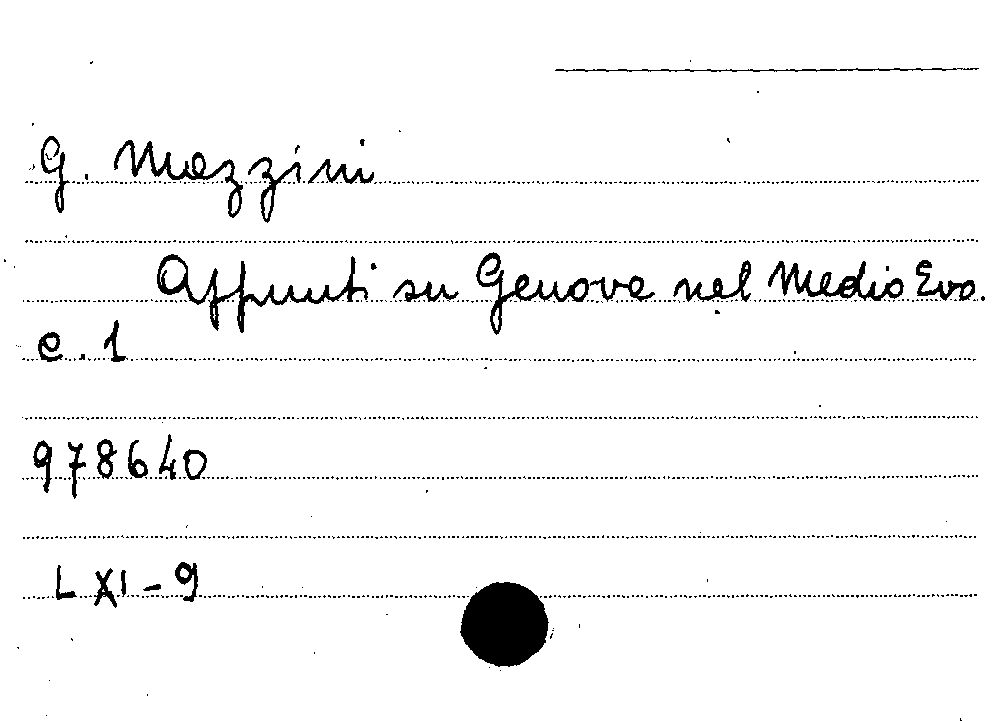 G. Mazzini
Appunti su Genova nel Medio Evo.
c. 1
978640
L XI - 9